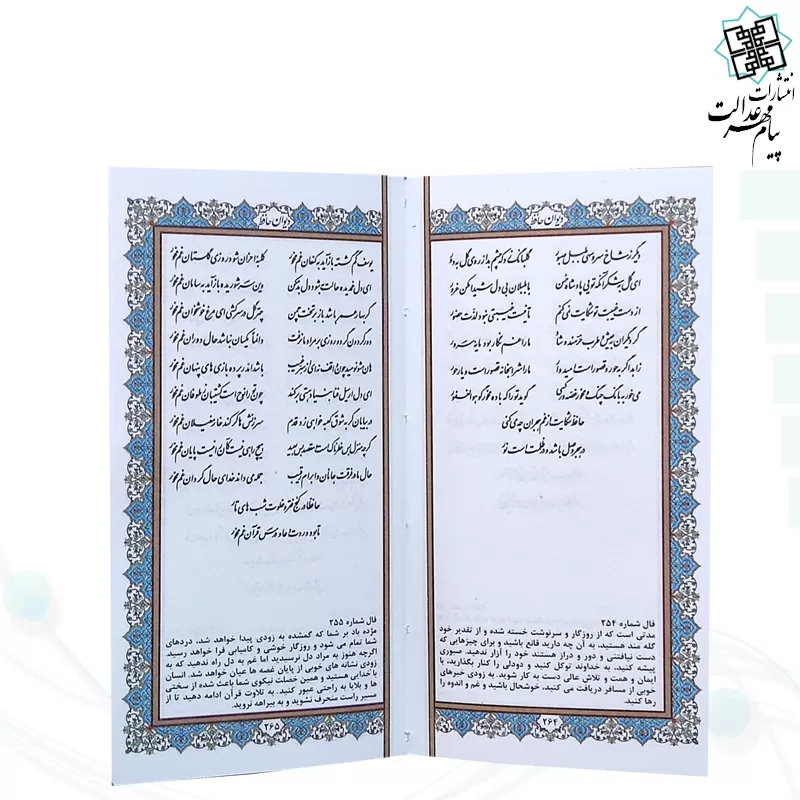 انتشارات
پیام مهر عدالت
دیوان حافظ
دیگر ز شاخ سرو سهی بلبل صبور
گلبانگ زد که چشم بد از روی گل به دور
ای گل به شکر آنکه تویی پادشاه حسن
با بلبلان بی دل شیدا مکن غرور
از دست غیبت تو شکایت نمی کنم
تا نیست غیبتی نبود لذت حضور
گر دیگران به عیش و طرب خرمند و شاد
ما را غم نگار بود مایه سرور
زاهد اگر به حور و قصور است امیدوار
ما را شرابخانه قصور است و یار حور
می خور به بانگ چنگ و مخور غصه ور کسی
گوید تو را که باده مخور گو هو الغفور
حافظ شکایت از غم هجران چه می کنی
در هجر وصل باشد و در ظلمت است نور
فال شماره ۲۵۴
مدتی است که از روزگار و سرنوشت خسته شده و از تقدیر خود
گله مند هستید، به آن چه دارید قانع باشید و برای چیزهایی که
دست نیافتنی و دور و دراز هستند خود را آزار ندهید. صبوری
پیشه کنید، به خداوند توکل کنید و دودلی را کنار بگذارید، با
ایمان و همت و تلاش عالی دست به کار شوید. به زودی خبرهای
خوبی از مسافر دریافت می کنید، خوشحال باشید و غم و اندوه را
رها کنید.
۲۶۴
دیوان حافظ
یوسف گم گشته باز آید به کنعان غم مخور
کلبه احزان شود روزی گلستان غم مخور
ای دل غمدیده حالت به شود دل بد مکن
وین سر شوریده باز آید به سامان غم مخور
گر بهار عمر باشد باز بر تخت چمن
چتر گل در سر کشی ای مرغ خوشخوان غم مخور
دور گردون گر دو روزی بر مراد ما نرفت
دائما یکسان نباشد حال دوران غم مخور
هان مشو نومید چون واقف نه ای از سر غیب
باشد اندر پرده بازی های پنهان غم مخور
ای دل ار سیل فنا بنیاد هستی برکند
چون تو را نوح است کشتیبان ز طوفان غم مخور
در بیابان گر به شوق کعبه خواهی زد قدم
سرزنش ها گر کند خار مغیلان غم مخور
گر چه منزل بس خطرناک است و مقصد بس بعید
هیچ راهی نیست کان را نیست پایان غم مخور
حال ما و فرقت جانان و ابرام رقیب
جمله می داند خدای حال گردان غم مخور
حافظا در کنج فقر و خلوت شب های تار
تا بود وردت دعا و درس قرآن غم مخور
فال شماره ۲۵۵
مژده باد بر شما که گمشده به زودی پیدا خواهد شد، دردهای
شما تمام می شود و روزگار خوشی و کامیابی فرا خواهد رسید.
اگرچه هنوز به مراد دل نرسیدید اما غم به دل راه ندهید که به
زودی نشانه های خوبی از پایان غصه ها عیان خواهد شد. انسان
با خدایی هستید و همین خصلت نیکوی شما باعث شده از سختی
ها و بلایا به راحتی عبور کنید. به تلاوت قرآن ادامه دهید تا از
مسیر راست منحرف نشوید و به بیراهه نروید.
۲۶۵